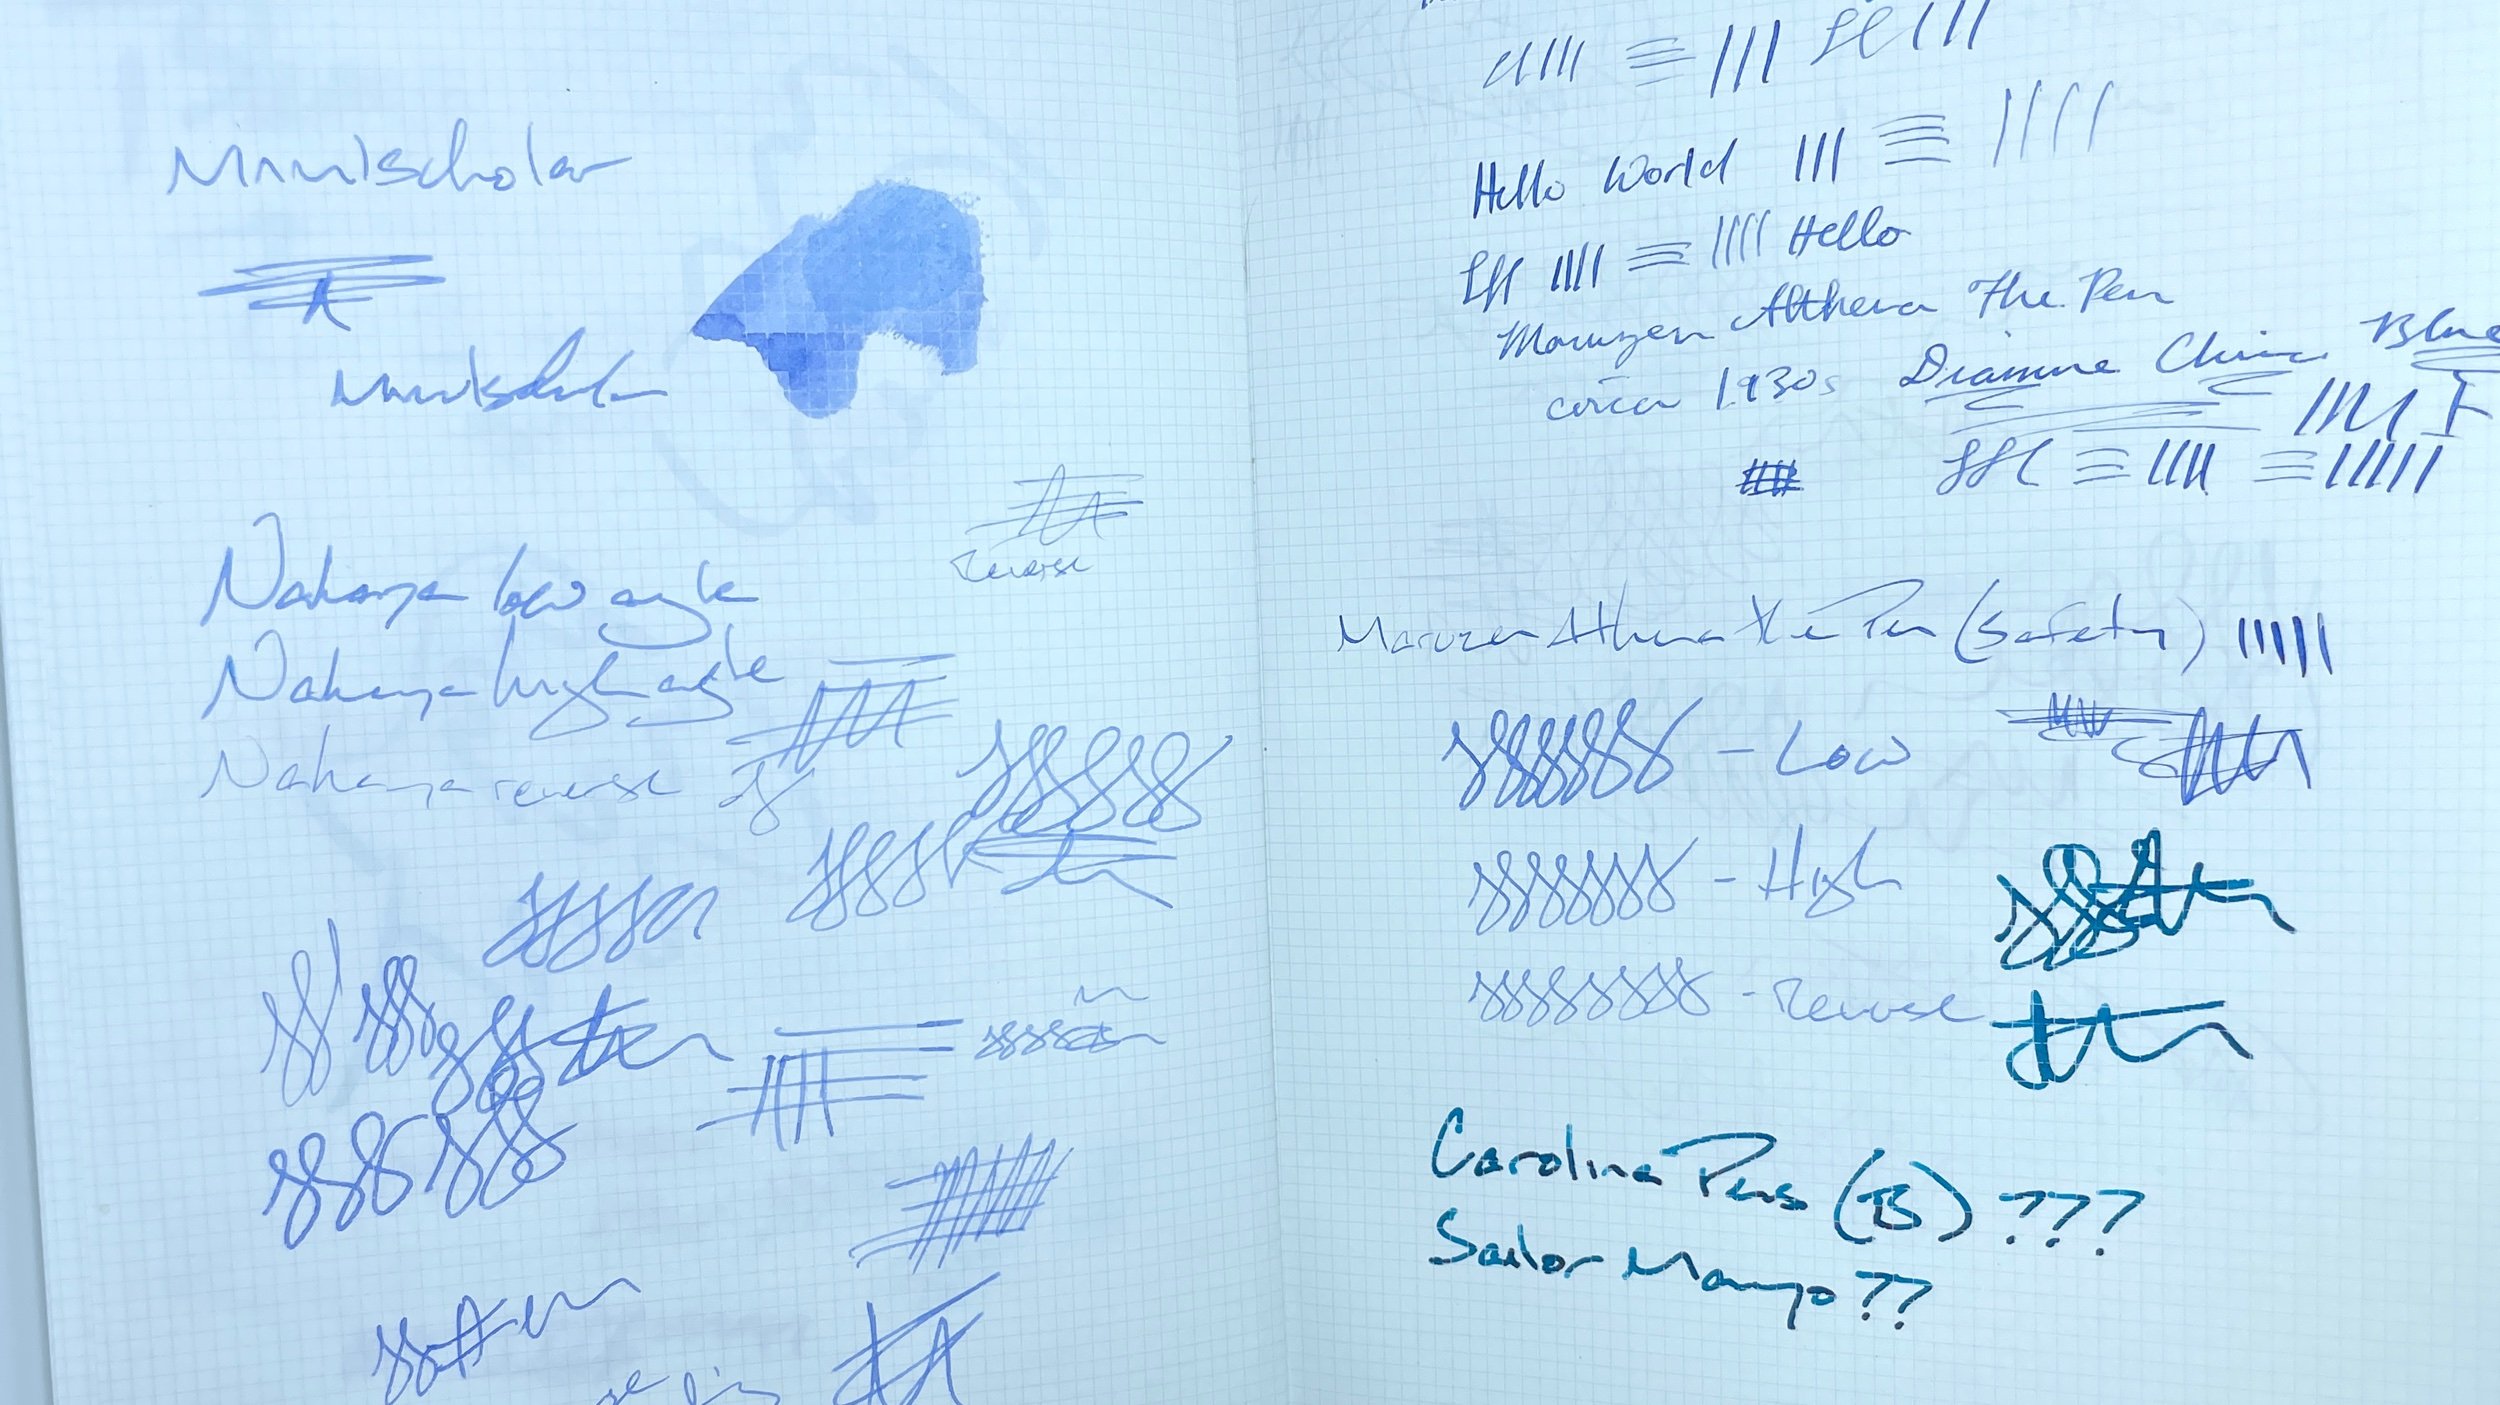 Nakaya low angle
Reverse
Nakaya high angle
Nakaya reverse
Hello World
Hello
Maruzen Athena The Pen
circa 1930s Diamine China Blue
Maruzen Athena The Pen (Safety)
- Low
- High
- Reverse
Carolina Pens (B) ???
Sailor Manyo ??